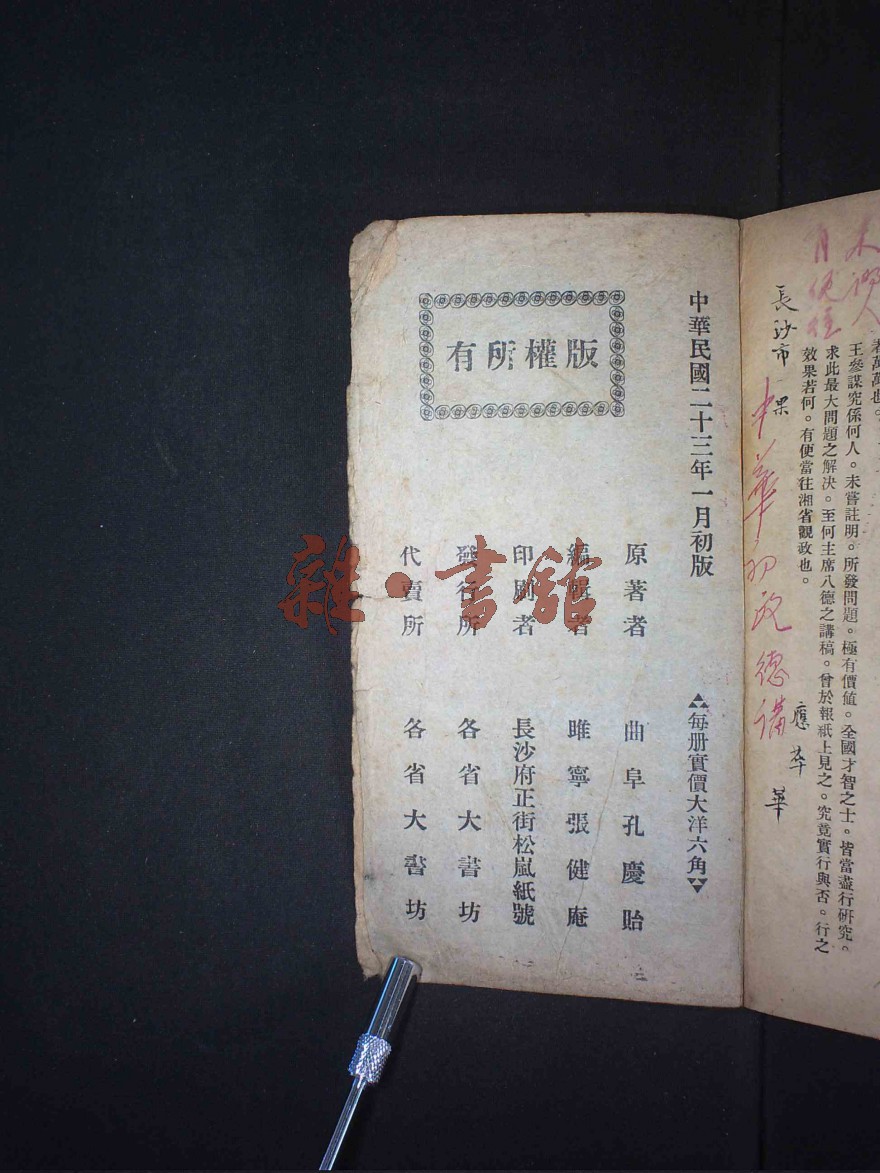 若萬萬也。
王參謀究係何人。未嘗註明。所發問題。極有價値。全國才智之士。皆當盡行硏究。
求此最大問題之解決。至何主席八德之講稿。曾於報紙上見之。究竟實行與否。行之
效果若何。有便當往湘省觀政也。
長沙市
中華
德講
中華民國二十三年一月初版
每册實價大洋六角
版權所有
原著者 曲阜孔慶貽
編輯者 睢寧張健庵
印刷者 長沙府正街松嵐紙號
發行所 各省大書坊
代賣所 各省大書坊
雜·書館